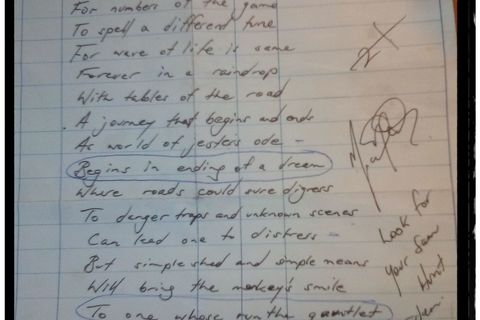 For numbers of the game
To spell a different tune
For wave of life is same
Forever in a raindrop
With tables of the road
A journey that begins and ends
As world of jesters ode -
Begins in ending of a dream
Where roads could sure digress
To danger traps and unknown scenes
Can lead one to distress -
But simple shed and simple means
Will bring the monkey's smile
To one whose run the gauntlet
Look for
your own